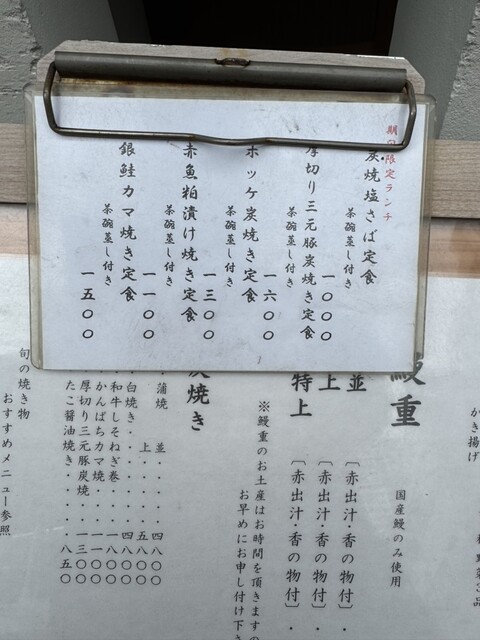 期間限定ランチ
炭焼塩さば定食
茶碗蒸し付き
一〇〇〇
厚切り三元豚炭焼き定食
茶碗蒸し付き
一六〇〇
ホッケ炭焼き定食
茶碗蒸し付き
一三〇〇
赤魚粕漬け焼き定食
茶碗蒸し付き
一一〇〇
銀鮭カマ焼き定食
茶碗蒸し付き
一五〇〇
かき揚げ
鰻重
国産鰻のみ使用
並 〔赤出汁・香の物付〕・
上 〔赤出汁・香の物付〕・
特上 〔赤出汁・香の物付〕・
※鰻重のお土産はお時間を頂きますの
お早めにお申し付け下さ
炭焼き
・蒲焼 並・・・四八〇〇
上・・・五八〇〇
・白焼き・・・・・四八〇〇
・和牛しそねぎ巻・・・八〇〇
・かんぱちカマ焼・・一一〇〇
・厚切り三元豚炭焼・・一三〇〇
・たこ醤油焼き・・・・八五〇
旬の焼き物
おすすめメニュー参照